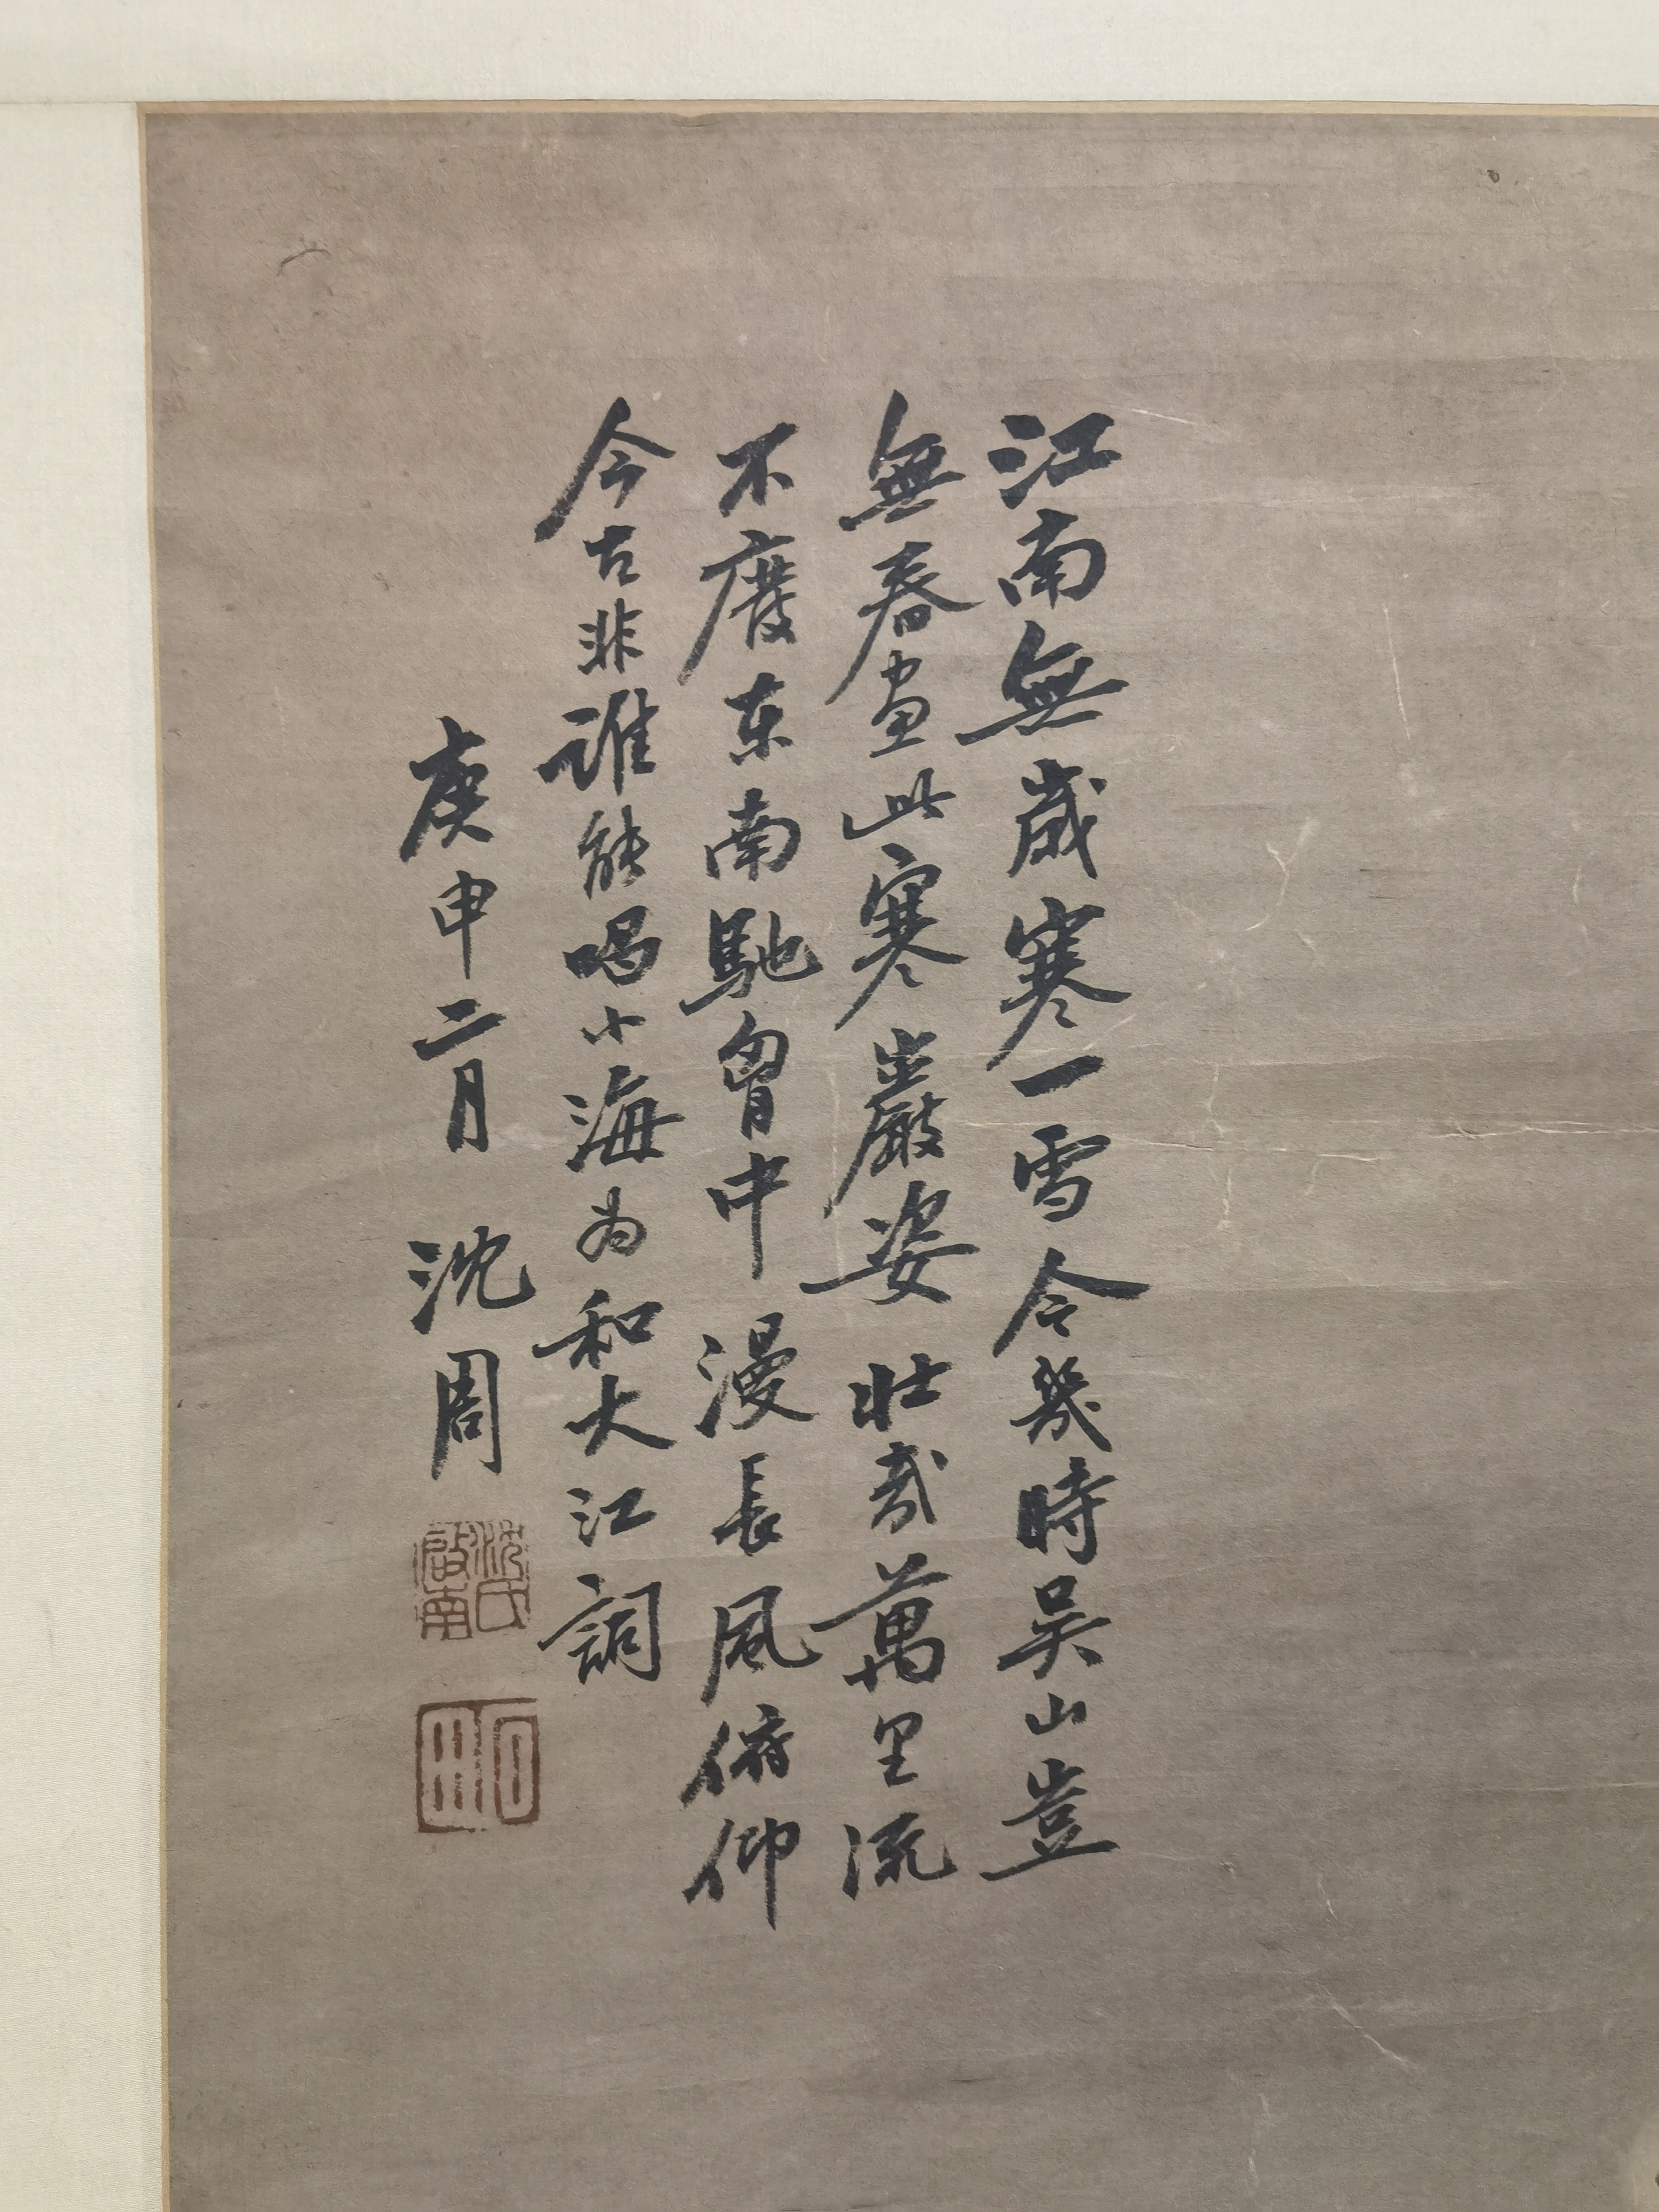 江南無歲寒一雪令幾時吴山豈
無春畫此寒巖姿壯哉萬里流
不廢东南馳胷中漫長風俯仰
今古非誰能喝小海为和大江詞
庚申二月 沈周
沈氏
啟南
石田